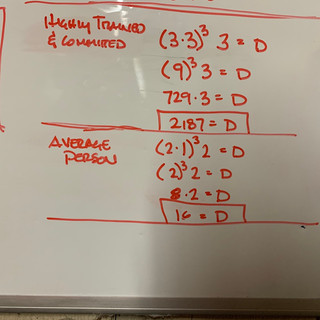 HIGHLY TRAINED (3·3)³ 3 = D
& COMMITED
(9)³ 3 = D
729·3 = D
2187 = D
AVERAGE (2·1)³ 2 = D
PERSON (2)³ 2 = D
8·2 = D
16 = D